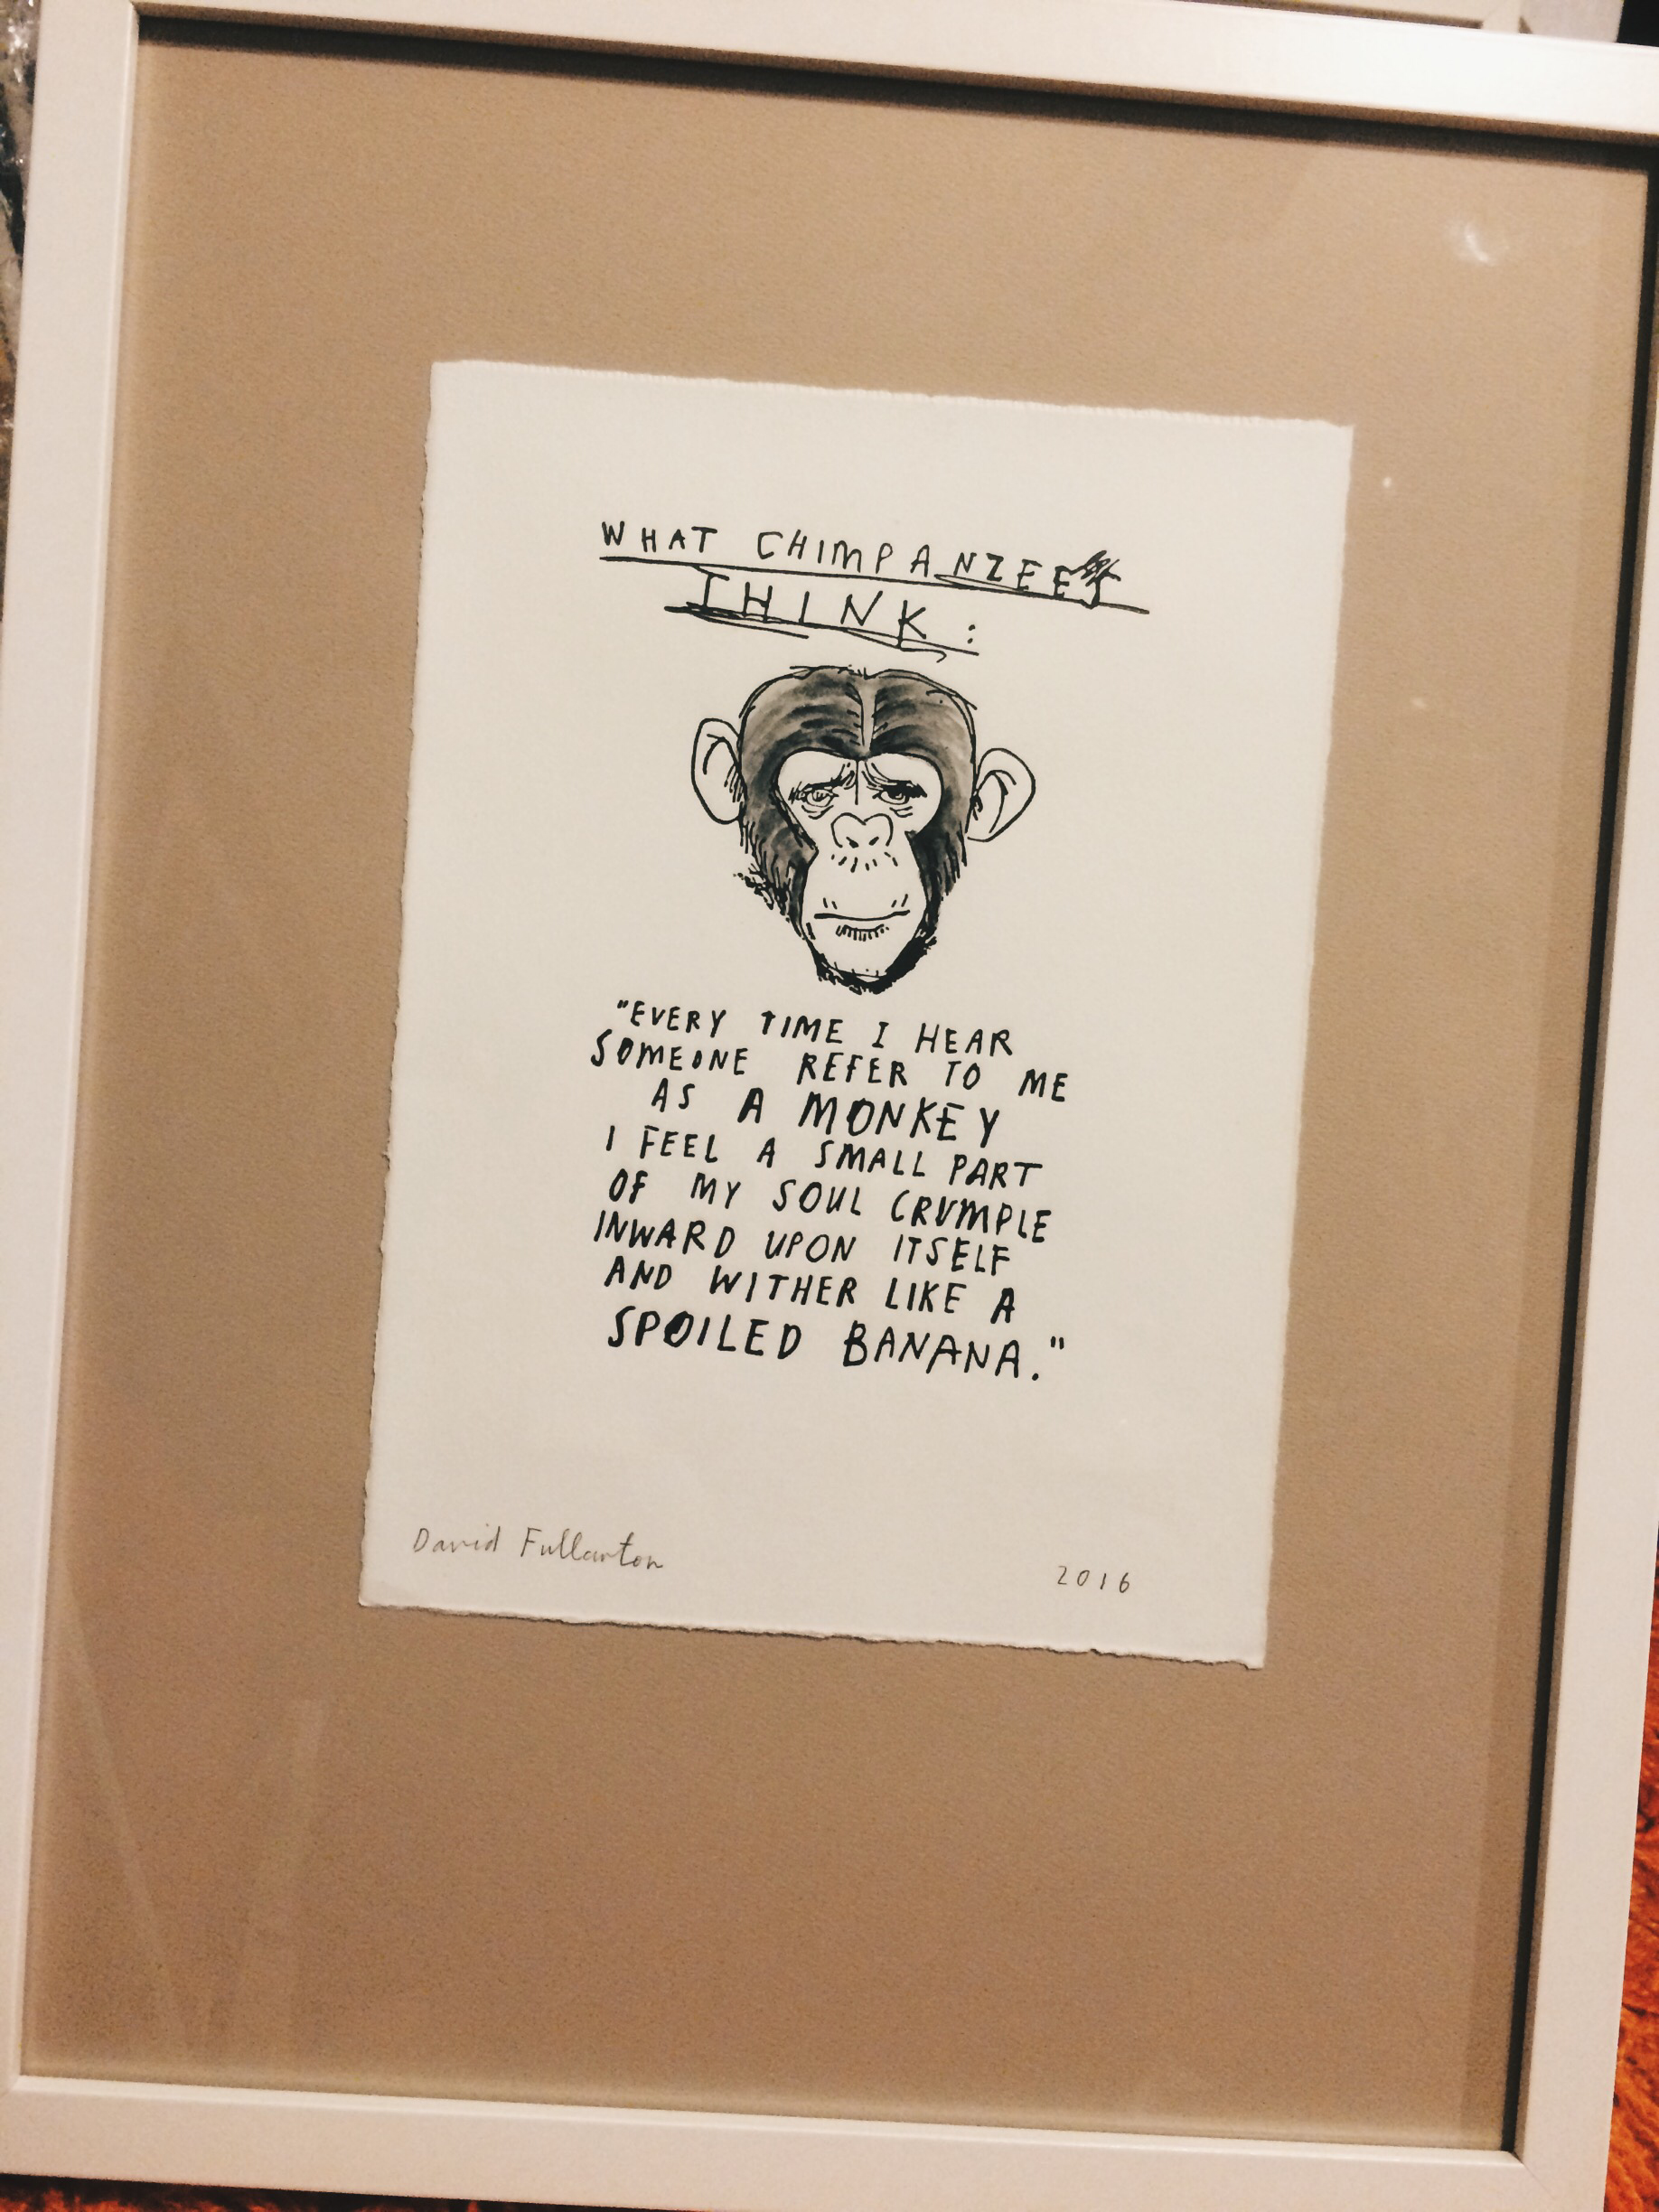 WHAT CHIMPANZEES
THINK:
"EVERY TIME I HEAR
SOMEONE REFER TO ME
AS A MONKEY
I FEEL A SMALL PART
OF MY SOUL CRUMPLE
INWARD UPON ITSELF
AND WITHER LIKE A
SPOILED BANANA."
David Fullarton
2016